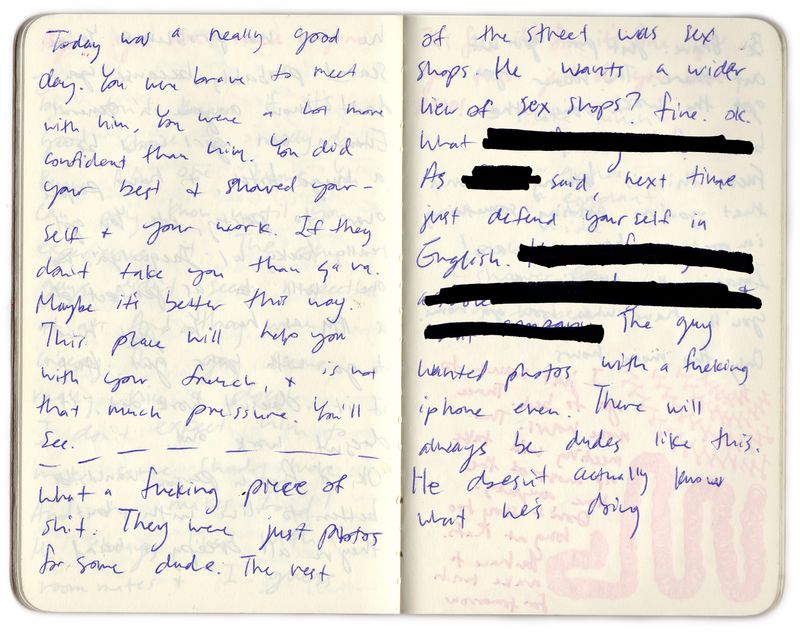 Today was a really good
day. You were brave to meet
with him, You were a lot more
confident than him. You did
your best & showed your-
self & your work. If they
don't take you than ça va.
Maybe it's better this way.
This place will help you
with your french, & is not
that much pressure. You'll
see.
What a fucking piece of
shit. They were just photos
for some dude. The rest
of the street was sex
shops. He wants a wider
view of sex shops? fine. ok.
What
As said, next time
just defend yourself in
English.
The guy
wanted photos with a fucking
iphone even. There will
always be dudes like this.
He doesn't actually know
what he's doing